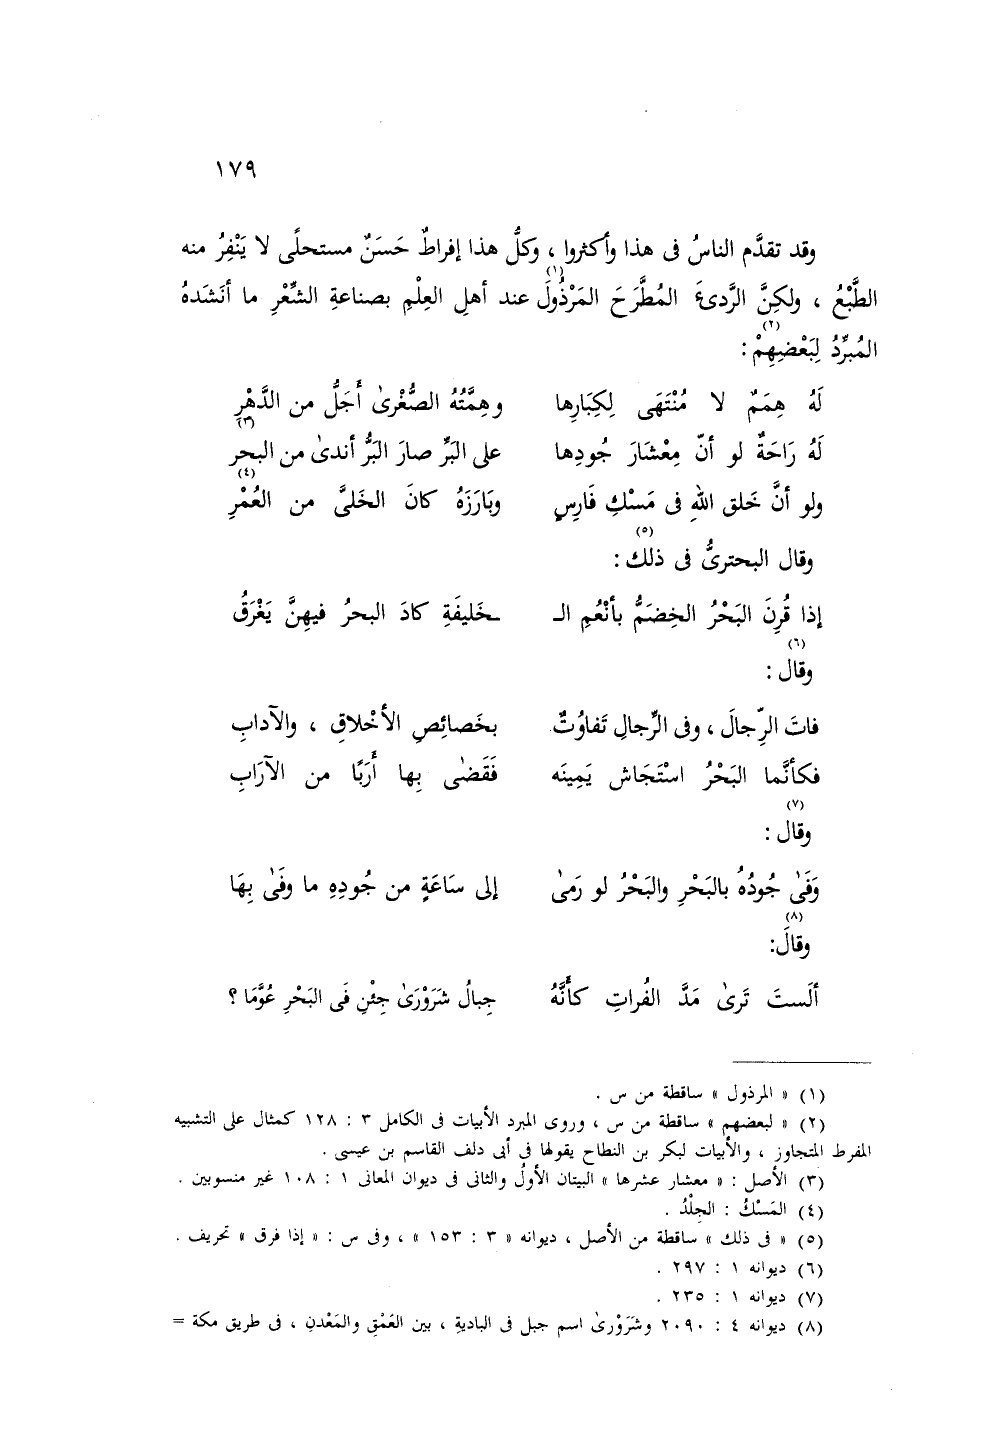 ١٧٩
وقد تقدَّم الناسُ فى هذا وأكثروا ، وكلُّ هذا إفراطٌ حَسَنٌ مستحلًى لا يَنْفِرُ منه
الطَّبْعُ ، ولكِنَّ الرَّدىَٔ المُطَّرَحَ المَرْذُولَ (١) عند أهلِ العِلْمِ بصناعةِ الشِّعْرِ ما أنَشدَهُ
المُبرِّدُ لِبَعْضِهِمْ (٢) :
لَهُ هِمَمٌ لا مُنْتَهَى لِكِبَارِها وهِمَّتُهُ الصُّغْرىٰ أَجَلُّ من الدَّهْرِ
لَهُ رَاحَةٌ لو أنّ مِعْشَارَ جُودِها على البَرِّ صارَ البَرُّ أندىٰ من البحر (٣)
ولو أنَّ خَلق اللهِ فى مَسْكِ فَارِسٍ وبَارَزَهُ كانَ الخَلىَّ من العُمْرِ (٤)
وقال البحترىُّ فى ذلك (٥) :
إذا قُرِنَ البَحْرُ الخِضَمُّ بأنْعُمِ الـ ـخَليفَةِ كادَ البحرُ فيهِنَّ يَغْرَقُ
وقال (٦) :
فاتَ الرِّجالَ ، وفى الرِّجالِ تَفاوُتٌ بخَصائِصِ الأخْلاقِ ، والآدابِ
فكأنَّما البَحْرُ اسْتَجَاش يَمِينَه فَقَضٰى بِها أَرَبًا من الآرَابِ
وقال (٧) :
وَفَىٰ جُودُهُ بالبَحْرِ والبَحْرُ لو رَمىٰ إلى سَاعَةٍ من جُودِهِ ما وفَىٰ بِهَا
وقالَ (٨) :
ألَستَ تَرىٰ مَدَّ الفُراتِ كأَنَّهُ جِبالُ شَرَوْرَىٰ جِئْنِ فَى البَحْرِ عُوَّمَا ؟
(١) « المرذول » ساقطة من س .
(٢) « لبعضهم » ساقطة من س ، وروى المبرد الأبيات فى الكامل ٣ : ١٢٨ كمثال على التشبيه
المفرط المتجاوز ، والأبيات لبكر بن النطاح يقولها فى أبى دلف القاسم بن عيسى .
(٣) الأصل : « معشار عشرها » البيتان الأولُ والثانى فى ديوان المعانى ١ : ١٠٨ غير منسوبين .
(٤) المَسْكُ : الجِلْدُ .
(٥) « فى ذلك » ساقطة من الأصل ، ديوانه « ٣ : ١٥٣ » ، وفى س : « إذا فرق » تحريف .
(٦) ديوانه ١ : ٢٩٧ .
(٧) ديوانه ١ : ٢٣٥ .
(٨) ديوانه ٤ : ٢٠٩٠ وشَرَوْرىٰ اسم جبل فى البادية ، بين العَمْقِ والمَعْدنِ ، فى طريق مكة =